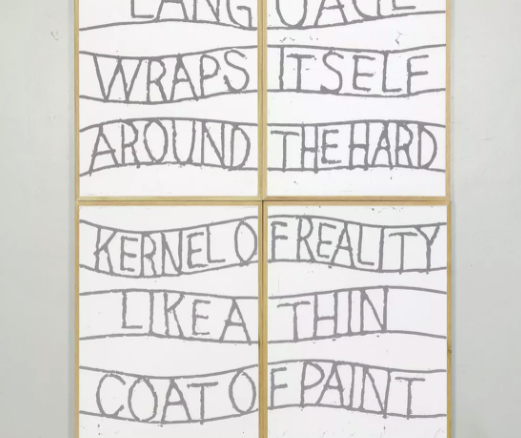 LANGUAGE
WRAPS ITSELF
AROUND THE HARD
KERNEL OF REALITY
LIKE A THIN
COAT OF PAINT